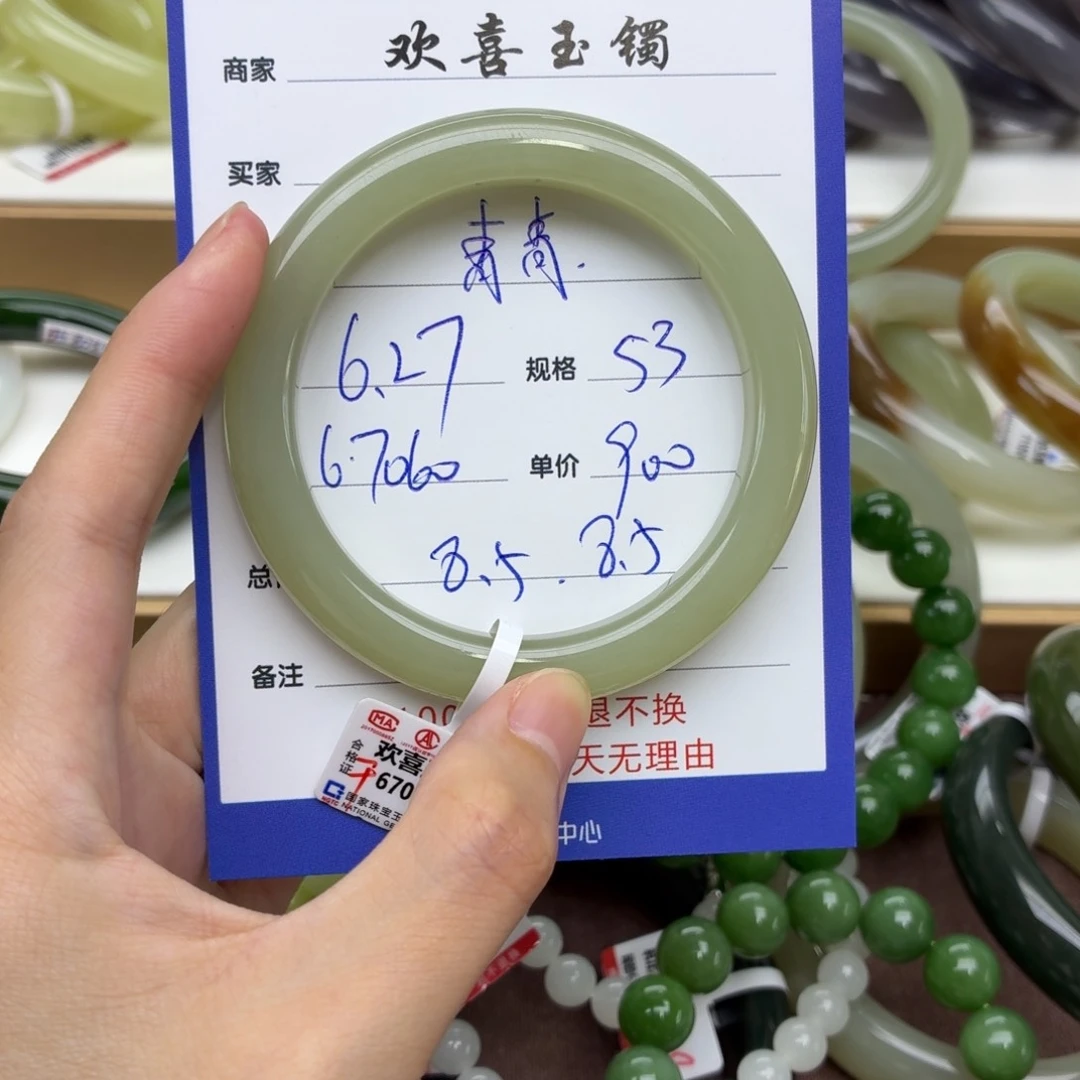 商家 欢喜玉镯
买家
青青.
6.27 规格 53
67060 单价 900
8.5 . 8.5
备注
退不换
天无理由
中心
MA
合格证
欢喜
670
国家珠宝玉
NATIONAL GE